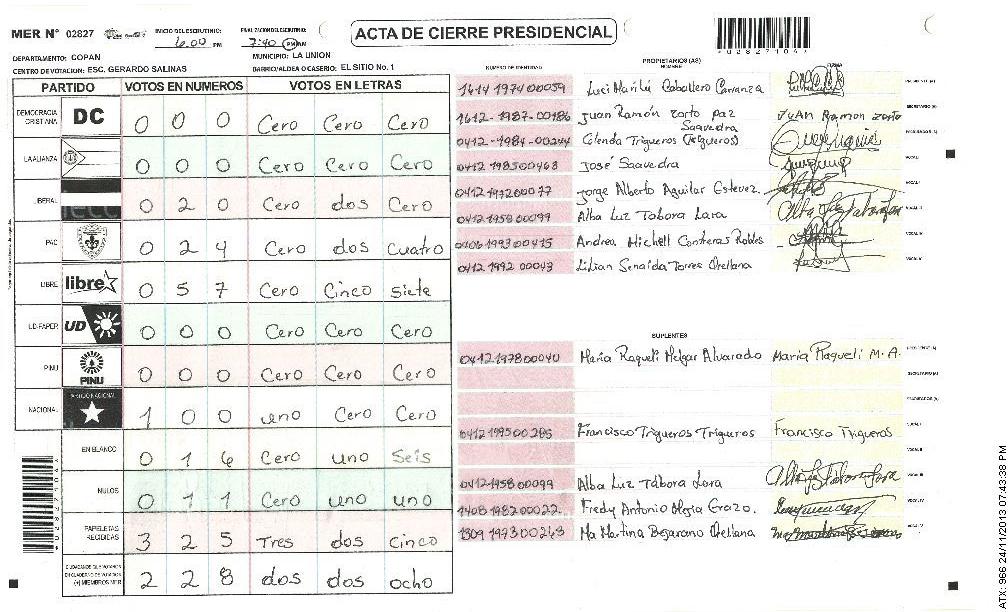 MER N° 02827
INICIO DEL ESCRUTINIO: 6:00 PM
FINALIZACION DEL ESCRUTINIO: 7:40 PM AM
ACTA DE CIERRE PRESIDENCIAL
DEPARTAMENTO: COPAN
MUNICIPIO: LA UNION
CENTRO DE VOTACION: ESC. GERARDO SALINAS
BARRIO/ALDEA O CASERIO: EL SITIO No. 1
PARTIDO VOTOS EN NUMEROS VOTOS EN LETRAS
DEMOCRACIA CRISTIANA DC 0 0 0 Cero Cero Cero
LA ALIANZA 0 0 0 Cero Cero Cero
LIBERAL 0 2 0 Cero dos Cero
PAC 0 2 4 Cero dos Cuatro
LIBRE libre 0 5 7 Cero Cinco Siete
UD-FAPER UD 0 0 0 Cero Cero Cero
PINU PINU 0 0 0 Cero Cero Cero
NACIONAL PARTIDO NACIONAL 1 0 0 uno Cero Cero
EN BLANCO 0 1 6 Cero uno Seis
NULOS 0 1 1 Cero uno uno
PAPELETAS RECIBIDAS 3 2 5 Tres dos Cinco
(+) MIEMBROS MER 2 2 8 dos dos ocho
NUMERO DE IDENTIDAD
PROPIETARIOS (AS)
NOMBRE
FIRMA
1614 1974 00059 Luci Marilú Caballero Carranza
1612-1987-00186 Juan Ramón Zorto Paz JUAN Ramon Zorto
0412-1984-00244 Celenda Trigueros (Trigueros) Saavedra
0412 1985 00468 José Saavedra
0412 1972 00077 Jorge Alberto Aguilar Estevez
0412 1958 00099 Alba Luz Tabora Lara
0406 1993 00415 Andrea Michell Contreras Robles
0412 1992 00043 Lilian Senaida Torres Orellana
SUPLENTES
0412 1978 00040 Maria Raqueli Melgar Alvarado Maria Raqueli M.A.
0412 1995 00285 Francisco Trigueros Trigueros Francisco Trigueros
0412 1958 00099 Alba Luz Tábora Lara
1408 1982 00022 Fredy Antonio Mejia Erazo.
1309 1973 00243 Ma Martina Bejarano Orellana
ATX: 966 24/11/2013 07:43:38 PM